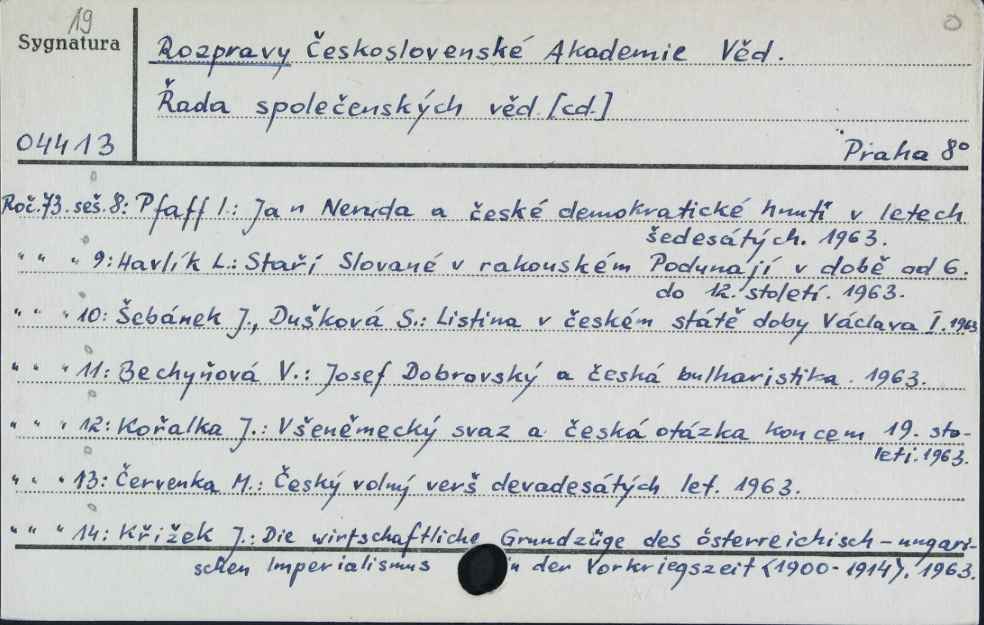 19
Sygnatura
Rozpravy Československé Akademie Věd.
Řada společenských věd. [cd.]
04413
Praha 8°
Roč. 73. seš. 8: Pfaff I.: Jan Neruda a české demokratické hnutí v letech
šedesátých. 1963.
" " " 9: Havlík L.: Staří Slované v rakouském Podunají v době od 6.
do 12. století. 1963.
" " " 10: Šebánek J., Dušková S.: Listina v českém státě doby Václava I. 1963
" " " 11: Bechyňová V.: Josef Dobrovský a česká bulharistika. 1963.
" " " 12: Kořalka J.: Všeněmecký svaz a česká otázka koncem 19. sto-
letí. 1963.
" " " 13: Červenka M.: Český volný verš devadesátých let. 1963.
" " " 14: Křížek J.: Die wirtschaftliche Grundzüge des österreichisch-ungari-
schen Imperialismus in der Vorkriegszeit <1900-1914>. 1963.